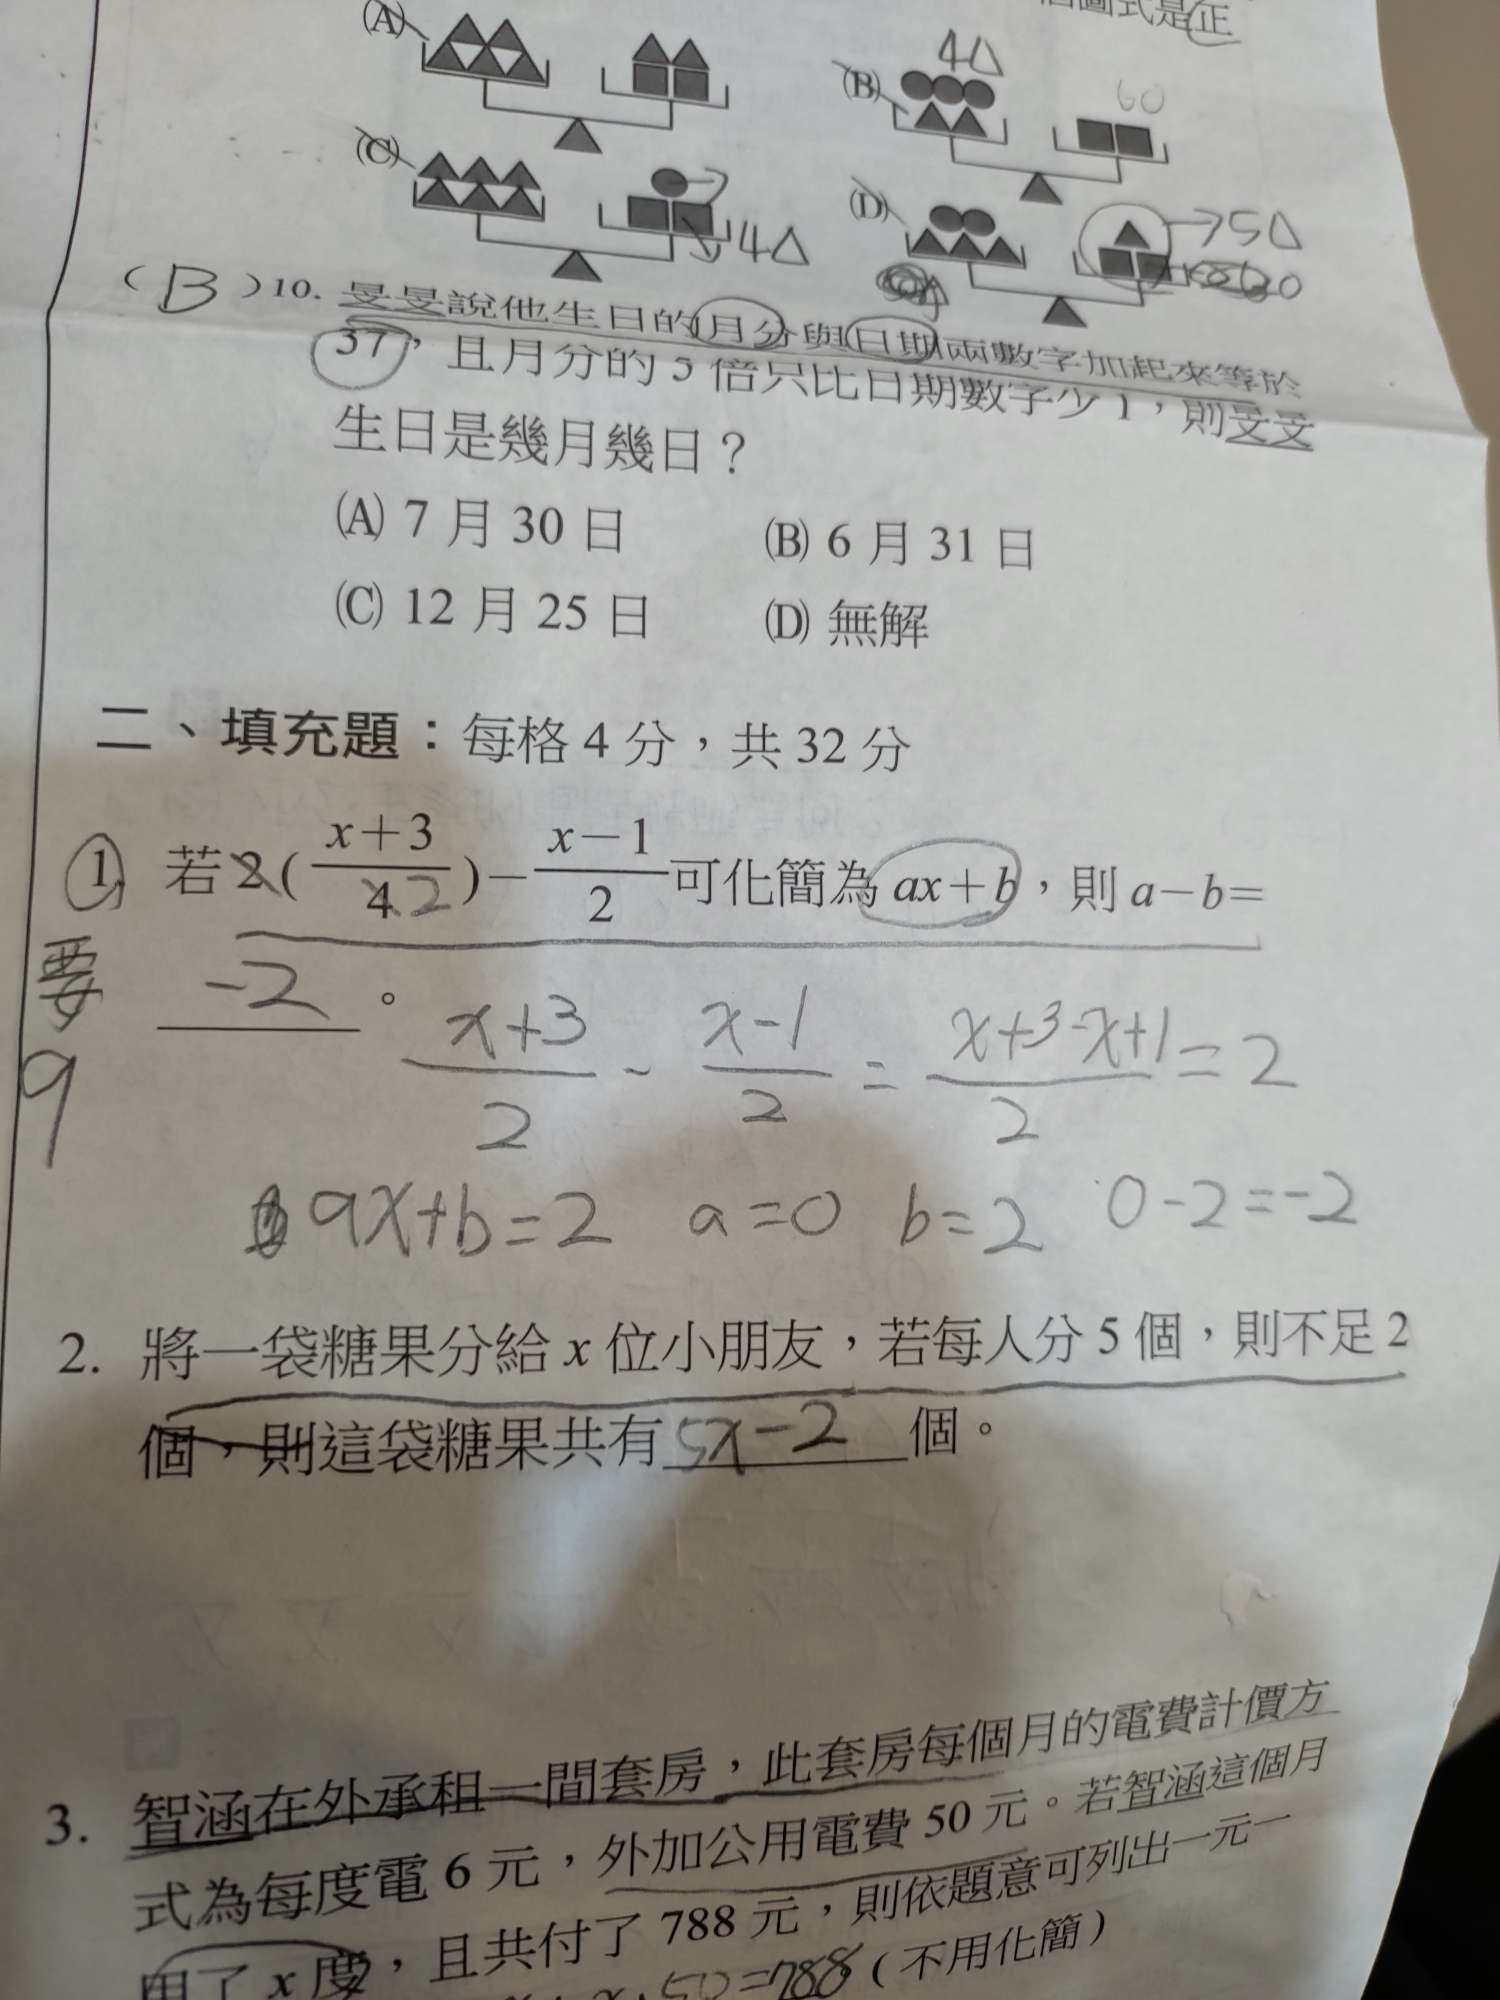 圖式是正
(A)
(B)
4△
60
(C)
4△
(D)
→5△
(B)10. 旻旻說他生日的月分與日期兩數字加起來等於
37，且月分的 5 倍只比日期數字少 1，則旻旻
生日是幾月幾日？
(A) 7 月 30 日
(B) 6 月 31 日
(C) 12 月 25 日
(D) 無解
二、填充題：每格 4 分，共 32 分
1. 若 2(x+3/4)−x−1/2 可化簡為 ax+b，則 a−b=
2
-2 。
要
9
x+3/2 - x-1/2 = x+3-x+1/2 = 2
ax+b=2 a=0 b=2 0-2=-2
2. 將一袋糖果分給 x 位小朋友，若每人分 5 個，則不足 2
個，則這袋糖果共有 5x-2 個。
3. 智涵在外承租一間套房，此套房每個月的電費計價方
式為每度電 6 元，外加公用電費 50 元。若智涵這個月
用了 x 度，且共付了 788 元，則依題意可列出一元一
50=788 (不用化簡)